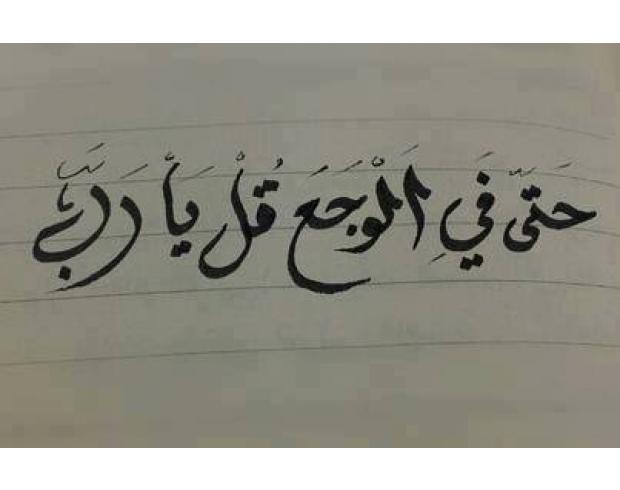 حَتَّى فَيِ الْوَجَعَ قُلْ يَا رَبَّ